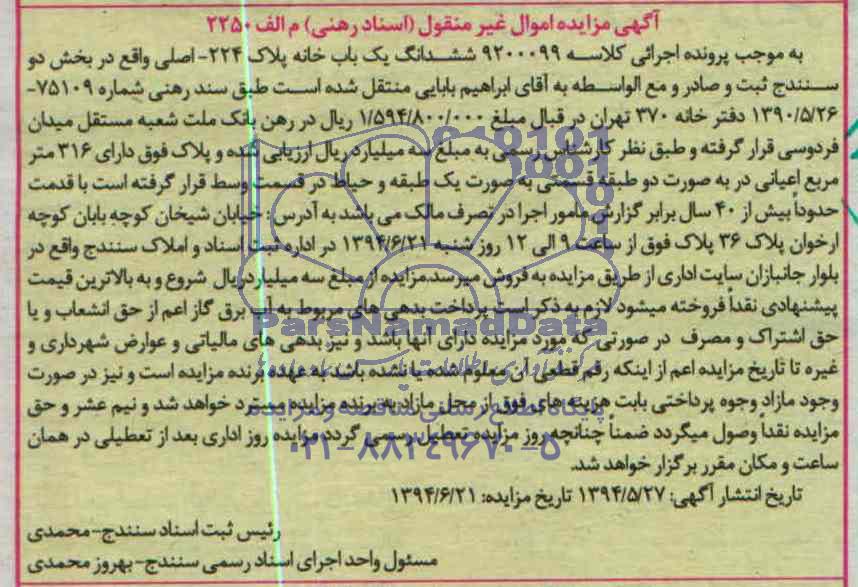 آگهی مزایده اموال غیر منقول (اسناد رهنی) م الف ۲۲۵۰
به موجب پرونده اجرائی کلاسه ۹۲۰۰۰۹۹ ششدانگ یک باب خانه پلاک ۲۲۴- اصلی واقع در بخش دو
سنندج ثبت و صادر و مع الواسطه به آقای ابراهیم بابایی منتقل شده است طبق سند رهنی شماره ۷۵۱۰۹-
۱۳۹۰/۵/۲۶ دفتر خانه ۳۷۰ تهران در قبال مبلغ ۱/۵۹۴/۸۰۰/۰۰۰ ریال در رهن بانک ملت شعبه مستقل میدان
فردوسی قرار گرفته و طبق نظر کارشناس رسمی به مبلغ سه میلیارد ریال ارزیابی شده و پلاک فوق دارای ۳۱۶ متر
مربع اعیانی در به صورت دو طبقه قسمتی به صورت یک طبقه و حیاط در قسمت وسط قرار گرفته است با قدمت
حدوداً بیش از ۴۰ سال برابر گزارش مامور اجرا در تصرف مالک می باشد به آدرس : خیابان شیخان کوچه بابان کوچه
ارخوان پلاک ۳۶ پلاک فوق از ساعت ۹ الی ۱۲ روز شنبه ۱۳۹۴/۶/۲۱ در اداره ثبت اسناد و املاک سنندج واقع در
بلوار جانبازان سایت اداری از طریق مزایده به فروش میرسد.مزایده از مبلغ سه میلیاردریال شروع و به بالاترین قیمت
پیشنهادی نقداً فروخته میشود لازم به ذکر است پرداخت بدهی های مربوط به آب برق گاز اعم از حق انشعاب و یا
ParsNamadData
حق اشتراک و مصرف در صورتی که مورد مزایده دارای آنها باشد و نیز بدهی های مالیاتی و عوارض شهرداری و
غیره تا تاریخ مزایده اعم از اینکه رقم قطعی آن معلوم شده یا نشده باشد به عهده برنده مزایده است و نیز در صورت
وجود مازاد وجوه پرداختی بابت هزینه های فوق از محل مازاد به برنده مزایده مسترد خواهد شد و نیم عشر و حق
مزایده نقداً وصول میگردد ضمناً چنانچه روز مزایده تعطیل رسمی گردد مزایده روز اداری بعد از تعطیلی در همان
۰۲۱-۸۸۳۴۹۶۷۰-۵
ساعت و مکان مقرر برگزار خواهد شد.
تاریخ انتشار آگهی: ۱۳۹۴/۵/۲۷ تاریخ مزایده: ۱۳۹۴/۶/۲۱
رئیس ثبت اسناد سنندج-محمدی
مسئول واحد اجرای اسناد رسمی سنندج-بهروز محمدی